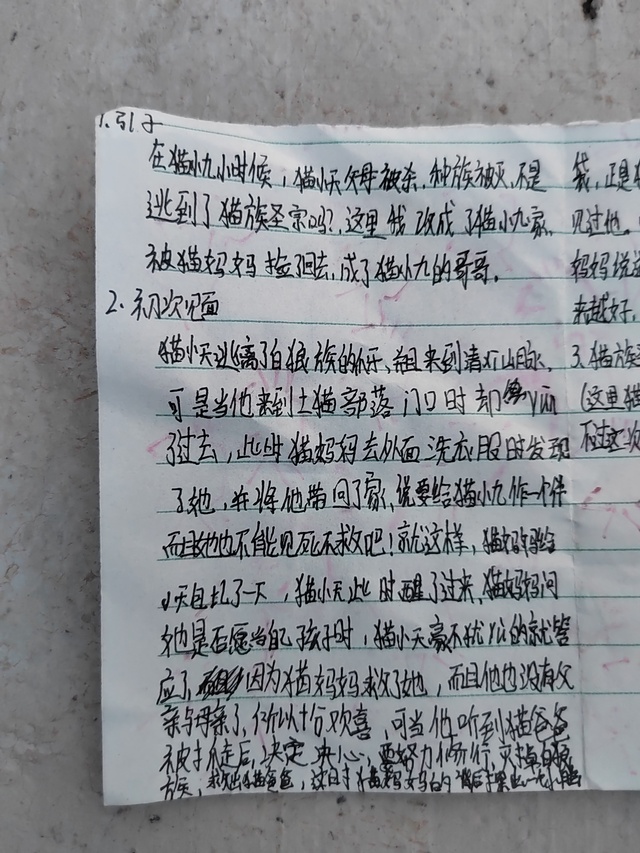 1.引子
在猫小九小时候，猫小天父母被杀，种族被灭，不是
逃到了猫族圣宗吗？这里我改成了猫小九家，
被猫妈妈捡了回去，成了猫小九的哥哥。
2.初次见面
猫小天逃离了白狼族的，来到青灯山脉，
可是当他来到土猫部落门口时却yun
了过去，此时猫妈妈去外面洗衣服时发现
了她，并将他带回了家，说要给猫小九作一个伴
而且她也不能见死不救吧！就这样，猫妈妈给
小天包扎了一下，猫小天此时醒了过来，猫妈妈问
她是否愿当自己孩子时，猫小天豪不犹的就答
应了，因为猫妈妈救了她，而且他也没有父
亲与母亲了，所以十分欢喜，可当他听到猫爸爸
被抓走后，决定决心，要努力修行，灭掉白狼
族，救出猫爸爸，这时猫妈妈
我，正是
见过他。
妈妈说这
来越好，
3.猫族
(这里猫
不过这次